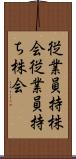 従業員持株
会従業員持
ち株会